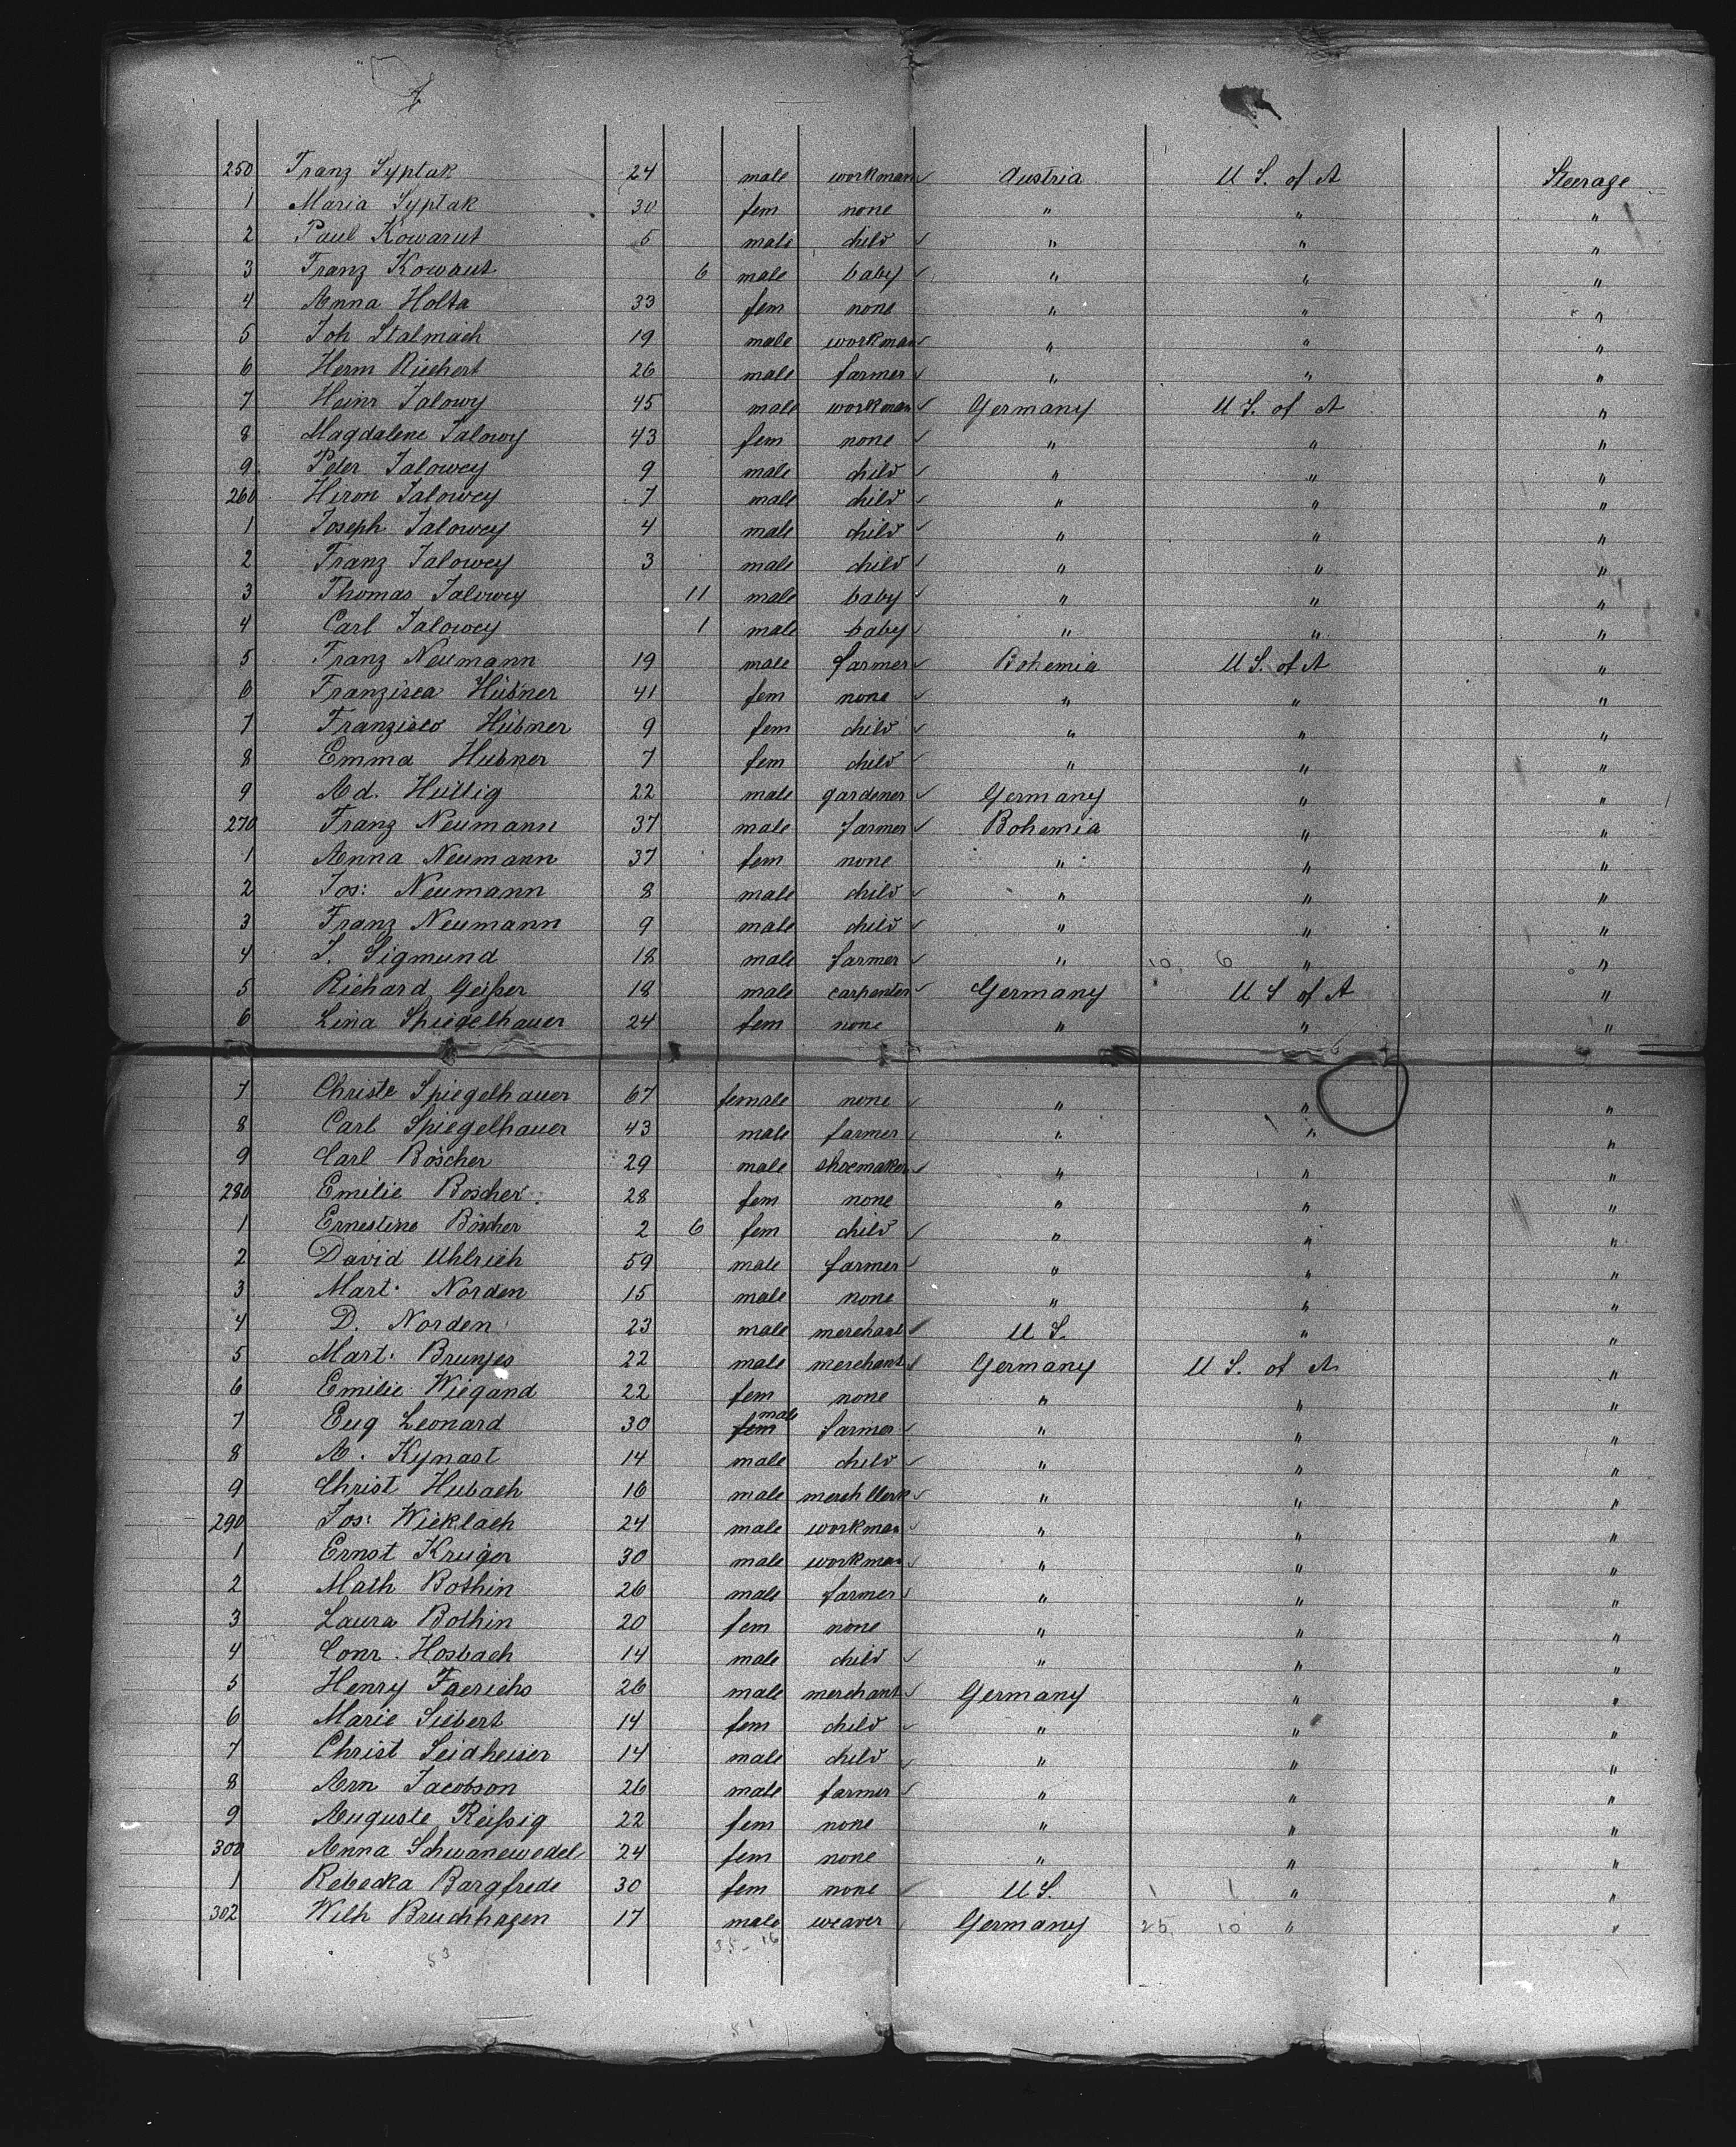 250 Franz Syptak 24 male workman Austria U S. of A Steerage
1 Maria Syptak 30 fem none " " "
2 Paul Kowarut 5 male child " " "
3 Franz Kowarut 6 male baby " " "
4 Anna Holta 33 fem none " " "
5 Joh Stalmach 19 male workman " " "
6 Herm Riechert 26 male farmer " " "
7 Heinr Jalowy 45 male workman Germany U S. of A "
8 Magdalene Jalowy 43 fem none " " "
9 Peter Jalowey 9 male child " " "
260 Hiron Jalowey 7 male child " " "
1 Joseph Jalowey 4 male child " " "
2 Franz Jalowey 3 male child " " "
3 Thomas Jalowey 11 male baby " " "
4 Carl Jalowey 1 male baby " " "
5 Franz Neumann 19 male farmer Bohemia U S. of A "
6 Franzisca Hübner 41 fem none " " "
7 Hübner 9 fem child " " "
8 Emma Hubner 7 fem child " " "
9 Ad. Hillig 22 male gardener Germany " "
270 Franz Neumann 37 male farmer Bohemia " "
1 Anna Neumann 37 fem none " " "
2 Jos: Neumann 8 male child " " "
3 Franz Neumann 9 male child " " "
4 J. Sigmund 18 male farmer " 10, 6 " "
5 Richard Geißer 18 male carpenter Germany U S of A "
6 Lina Spiegelhauer 24 fem none " " "
7 Christe Spiegelhauer 67 female none " " "
8 Carl Spiegelhauer 43 male farmer " " "
9 Carl Böscher 29 male shoemaker " " "
280 Emilie Boscher 28 fem none " " "
1 Ernestine Böscher 2 6 fem child " " "
2 David Uhlrich 59 male farmer " " "
3 Mart. Norden 15 male none " " "
4 D. Norden 23 male merchant U S. " "
5 Mart. Brunjes 22 male merchant Germany U S. of A "
6 Emilie Wiegand 22 fem none " " "
7 Eug Leonard 30 fem male farmer " " "
8 A. Kynast 14 male child " " "
9 Christ Hubach 16 male merch Clerk " " "
290 Jos: Wicklach 24 male workman " " "
1 Ernst Kruger 30 male workman " " "
2 Math Bothin 26 male farmer " " "
3 Laura Bothin 20 fem none " " "
4 Conr. Hosbach 14 male child " " "
5 Henry Faerichs 26 male merchant Germany " "
6 Marie Siebert 14 fem child " " "
7 Christ Seidheiser 14 male child " " "
8 Arn Jacobson 26 male farmer " " "
9 Auguste Reißig 22 fem none " " "
300 Anna Schwanewedel 24 fem none " " "
1 Rebecka Bargfrede 30 fem none U S. 1 1 " "
302 Wilh Bruchhagen 17 male weaver Germany 25, 10 " "
53 35-16